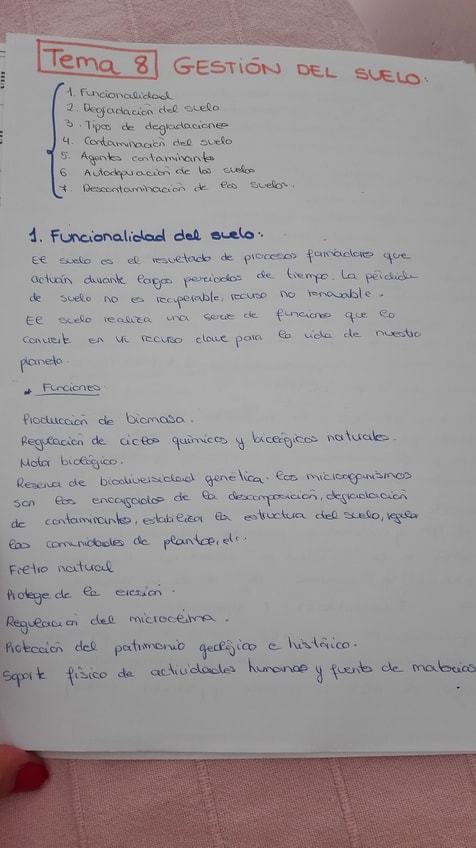 Tema 8 GESTIÓN DEL SUELO:
1. Funcionalidad
2. Degradación del suelo
3. Tipos de degradaciones
4. Contaminación del suelo
5. Agentes contaminante
6. Autodepuración de los suelos
7. Descontaminación de los suelos.
1. Funcionalidad del suelo:
El suelo es el resultado de procesos formadores que
actúan durante largos periodos de tiempo. La pérdida
de suelo no es recuperable, recurso no renovable.
El suelo realiza una serie de funciones que lo
convierte en un recurso clave para la vida de nuestro
planeta.
Funciones
Producción de biomasa.
Regulación de ciclos químicos y biológicos naturales.
Motor biológico.
Reserva de biodiversidad genética. los microorganismos
son los encargados de la descomposición, degradación
de contaminantes, estabilizar la estructura del suelo, regular
las comunidades de plantas, etc.
Filtro natural
Protege de la erosión.
Regulación del microclima.
Protección del patrimonio geológico e histórico.
Soporte físico de actividades humanas y fuente de materias